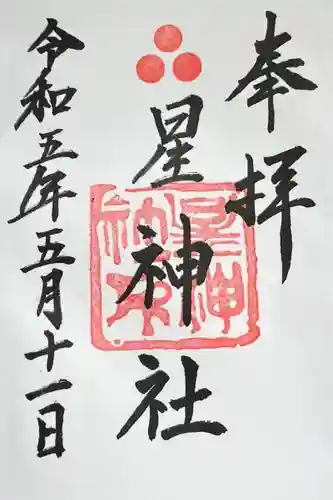 奉拝
星神社
星神社印
令和五年五月十一日